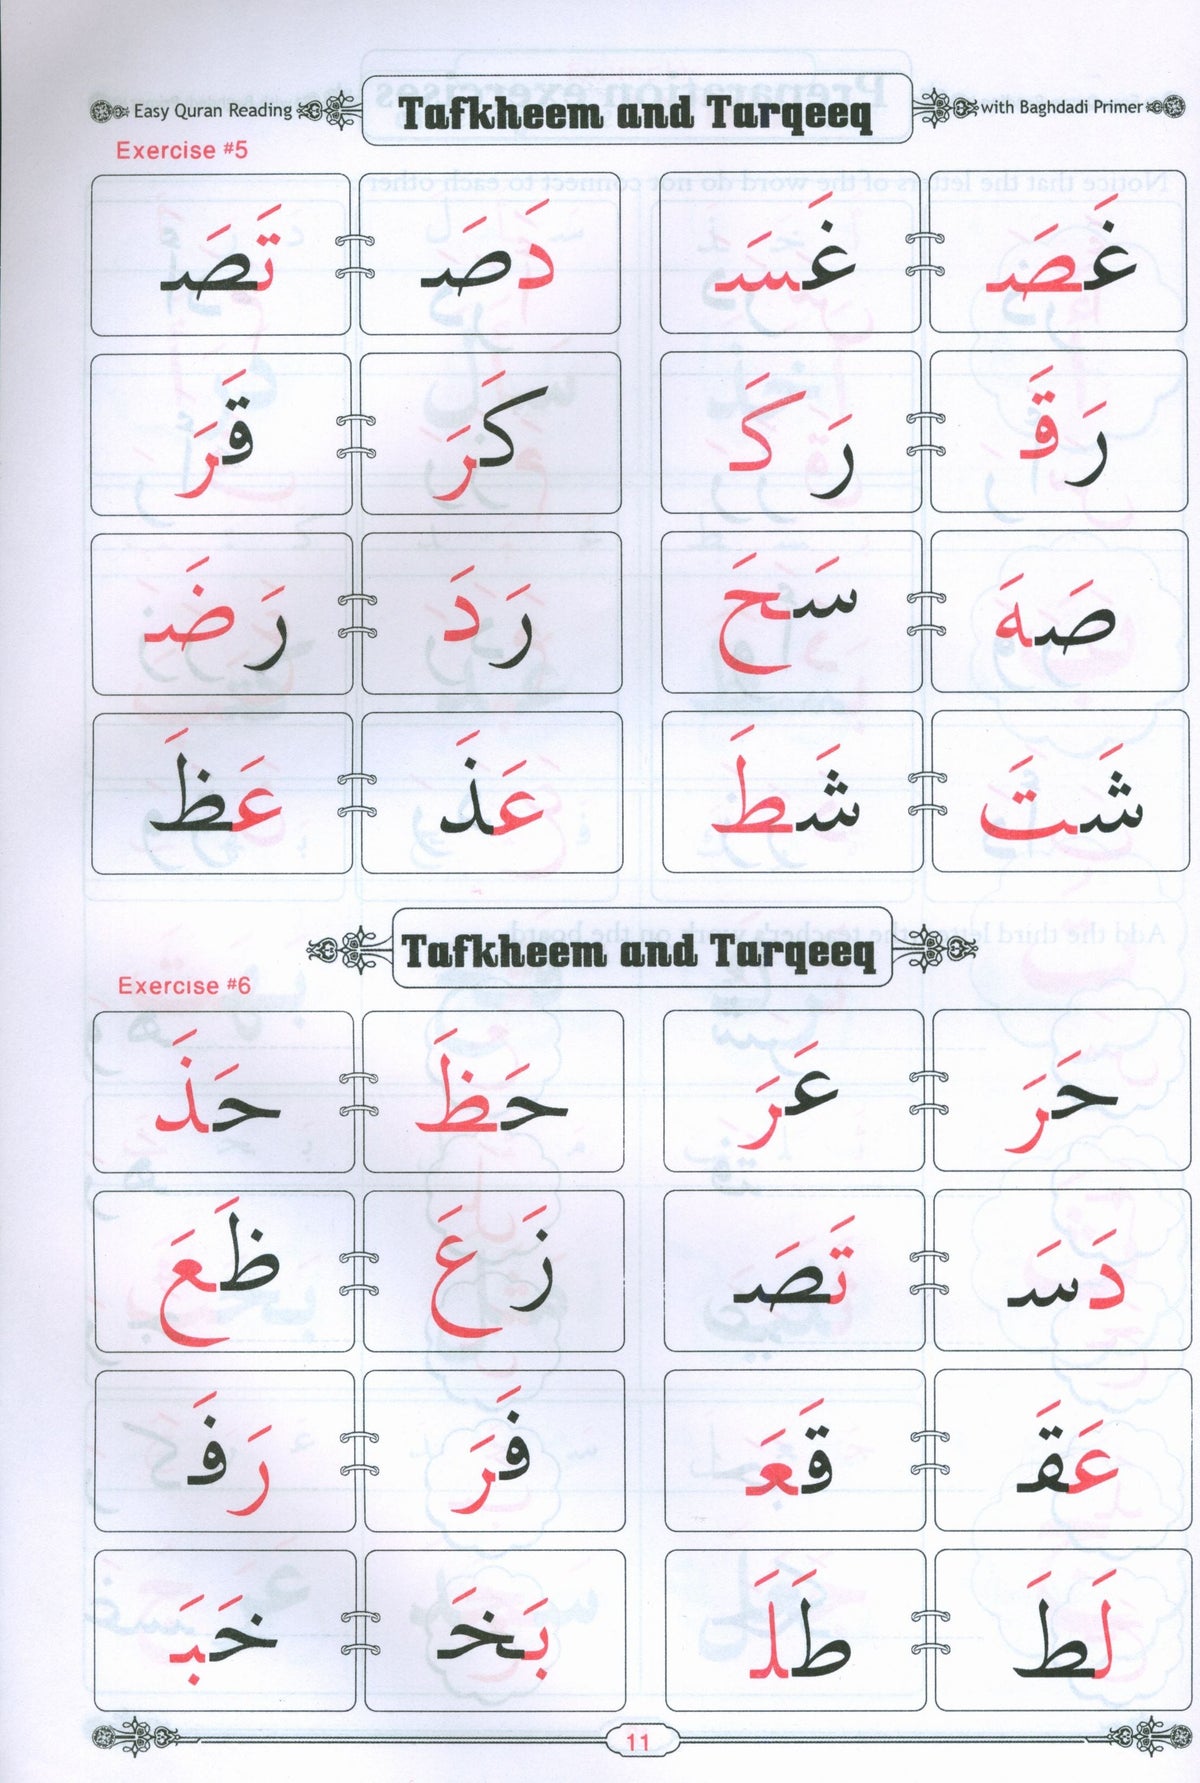 Easy Quran Reading Tafkheem and Tarqeeq with Baghdadi Primer
Exercise #5
غَصَـ غَسَـ دَصَـ تَصَـ
رَقَ رَكَ كَرَ قَرَ
صَهَ سَحَ رَدَ رَضَـ
شَتَ شَطَ عَذَ عَظَ
Tafkheem and Tarqeeq
Exercise #6
حَرَ عَرَ حَظَ حَذَ
دَسَـ تَصَـ زَعَ ظَعَ
عَقَـ قَعَـ فَرَ رَفَ
لَطَ طَلَـ بَخَـ خَبَـ
11